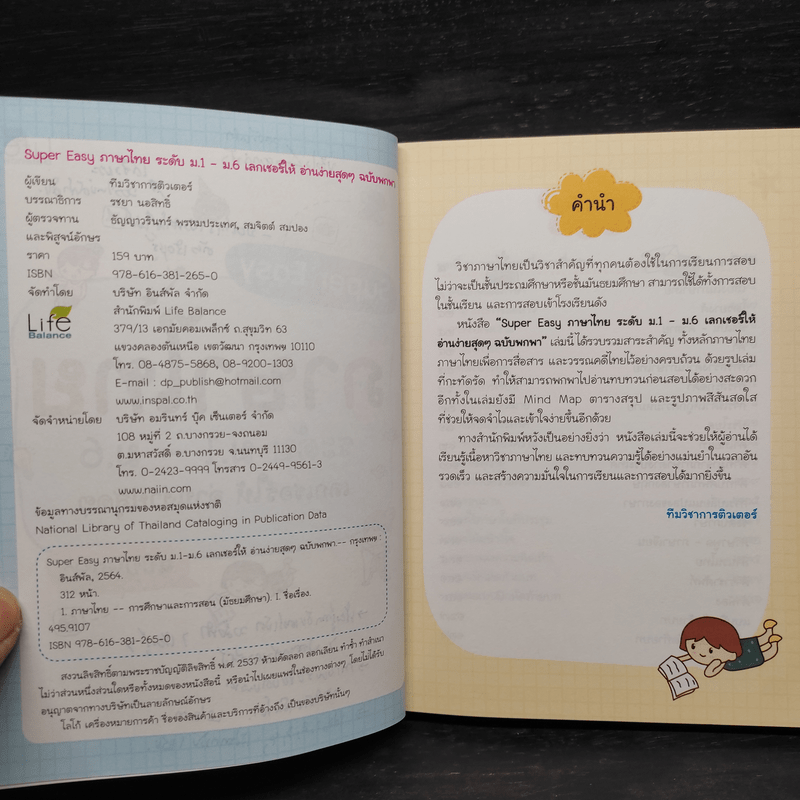 Super Easy ภาษาไทย ระดับ ม.1 - ม.6 เลกเชอร์ให้ อ่านง่ายสุดๆ ฉบับพกพา
ผู้เขียน ทีมวิชาการติวเตอร์
บรรณาธิการ รชยา นอสิทธิ์
ผู้ตรวจทาน ธัญญาวรินทร์ พรหมประเทศ, สมจิตต์ สมปอง
และพิสูจน์อักษร
ราคา 159 บาท
ISBN 978-616-381-265-0
จัดทำโดย บริษัท อินส์พัล จำกัด
สำนักพิมพ์ Life Balance
Life Balance
379/13 เอกมัยคอมเพล็กซ์ ถ.สุขุมวิท 63
แขวงคลองตันเหนือ เขตวัฒนา กรุงเทพฯ 10110
โทร. 08-4875-5868, 08-9200-1303
E-mail : dp_publish@hotmail.com
www.inspal.co.th
จัดจำหน่ายโดย บริษัท อมรินทร์ บุ๊ค เซ็นเตอร์ จำกัด
108 หมู่ที่ 2 ถ.บางกรวย-จงถนอม
ต.มหาสวัสดิ์ อ.บางกรวย จ.นนทบุรี 11130
โทร. 0-2423-9999 โทรสาร 0-2449-9561-3
www.naiin.com
ข้อมูลทางบรรณานุกรมของหอสมุดแห่งชาติ
National Library of Thailand Cataloging in Publication Data
Super Easy ภาษาไทย ระดับ ม.1-ม.6 เลกเชอร์ให้ อ่านง่ายสุดๆ ฉบับพกพา.-- กรุงเทพฯ :
อินส์พัล, 2564.
312 หน้า.
1. ภาษาไทย -- การศึกษาและการสอน (มัธยมศึกษา). I. ชื่อเรื่อง.
495.9107
ISBN 978-616-381-265-0
สงวนลิขสิทธิ์ตามพระราชบัญญัติลิขสิทธิ์ พ.ศ. 2537 ห้ามคัดลอก ลอกเลียน ทำซ้ำ ทำสำเนา
ไม่ว่าส่วนหนึ่งส่วนใดหรือทั้งหมดของหนังสือนี้ หรือนำไปเผยแพร่ในช่องทางต่างๆ โดยไม่ได้รับ
อนุญาตจากทางบริษัทเป็นลายลักษณ์อักษร
โลโก้ เครื่องหมายการค้า ชื่อของสินค้าและบริการที่อ้างถึง เป็นของบริษัทนั้นๆ
คำนำ
วิชาภาษาไทยเป็นวิชาสำคัญที่ทุกคนต้องใช้ในการเรียนการสอบ
ไม่ว่าจะเป็นชั้นประถมศึกษาหรือชั้นมัธยมศึกษา สามารถใช้ได้ทั้งการสอบ
ในชั้นเรียน และการสอบเข้าโรงเรียนดัง
หนังสือ “Super Easy ภาษาไทย ระดับ ม.1 - ม.6 เลกเชอร์ให้
อ่านง่ายสุดๆ ฉบับพกพา” เล่มนี้ ได้รวบรวมสาระสำคัญ ทั้งหลักภาษาไทย
ภาษาไทยเพื่อการสื่อสาร และวรรณคดีไทยไว้อย่างครบถ้วน ด้วยรูปเล่ม
ที่กะทัดรัด ทำให้สามารถพกพาไปอ่านทบทวนก่อนสอบได้อย่างสะดวก
อีกทั้งในเล่มยังมี Mind Map ตารางสรุป และรูปภาพสีสันสดใส
ที่ช่วยให้จดจำไวและเข้าใจง่ายขึ้นอีกด้วย
ทางสำนักพิมพ์หวังเป็นอย่างยิ่งว่า หนังสือเล่มนี้จะช่วยให้ผู้อ่านได้
เรียนรู้เนื้อหาวิชาภาษาไทย และทบทวนความรู้ได้อย่างแม่นยำในเวลาอัน
รวดเร็ว และสร้างความมั่นใจในการเรียนและการสอบได้มากยิ่งขึ้น
ทีมวิชาการติวเตอร์